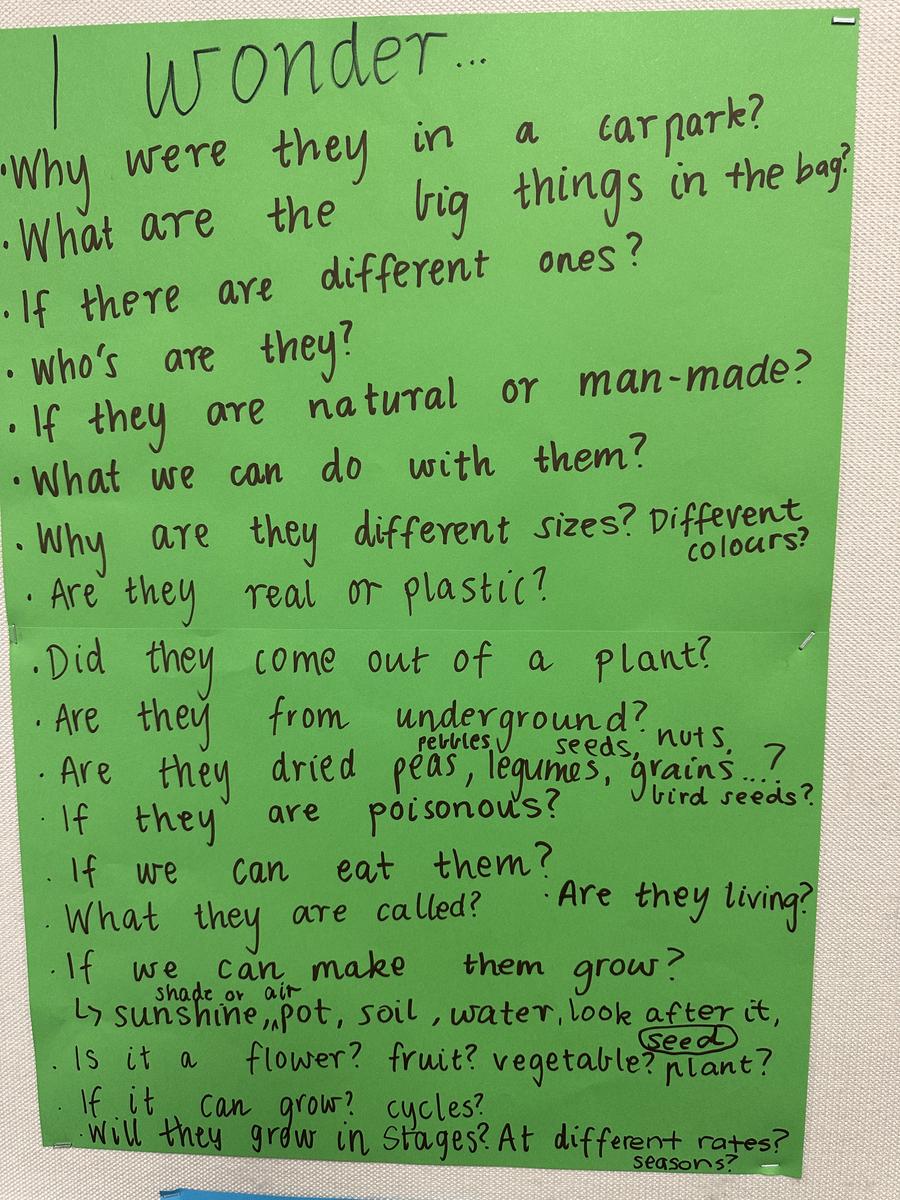 I wonder...
• Why were they in a car park?
• What are the big things in the bag?
• If there are different ones?
• Who's are they?
• If they are natural or man-made?
• What we can do with them?
• Why are they different sizes? Different
colours?
• Are they real or plastic?
• Did they come out of a plant?
• Are they from underground?
pebbles, seeds, nuts,
• Are they dried peas, legumes, grains...?
bird seeds?
• If they are poisonous?
• If we can eat them?
• Are they living?
• What they are called?
• If we can make them grow?
shade or air
↳ sunshine, ^ pot, soil, water, look after it,
seed
• Is it a flower? fruit? vegetable? plant?
• If it can grow? cycles?
• Will they grow in stages? At different rates?
seasons?